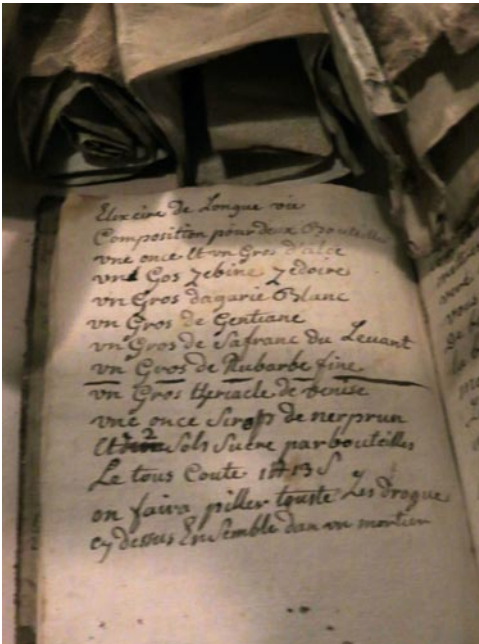 Elixcire de Longue vie
Composition pour deux Bouteilles
vne once et vn Gros d'aloe
vn Gos Zebine Zedoire
vn Gros dagaric Blanc
vn Gros de Gentiane
vn Gros de Safranc du Levant
vn Gros de Rubarbe fine
vn Gros theriacle de Venise
vne once Sirop de nerprun
et Sols Sucre par bouteilles
Le tous Coute 13 S
on faira piller touste Les drogue
cy dessus Ensemble dan vn mortier